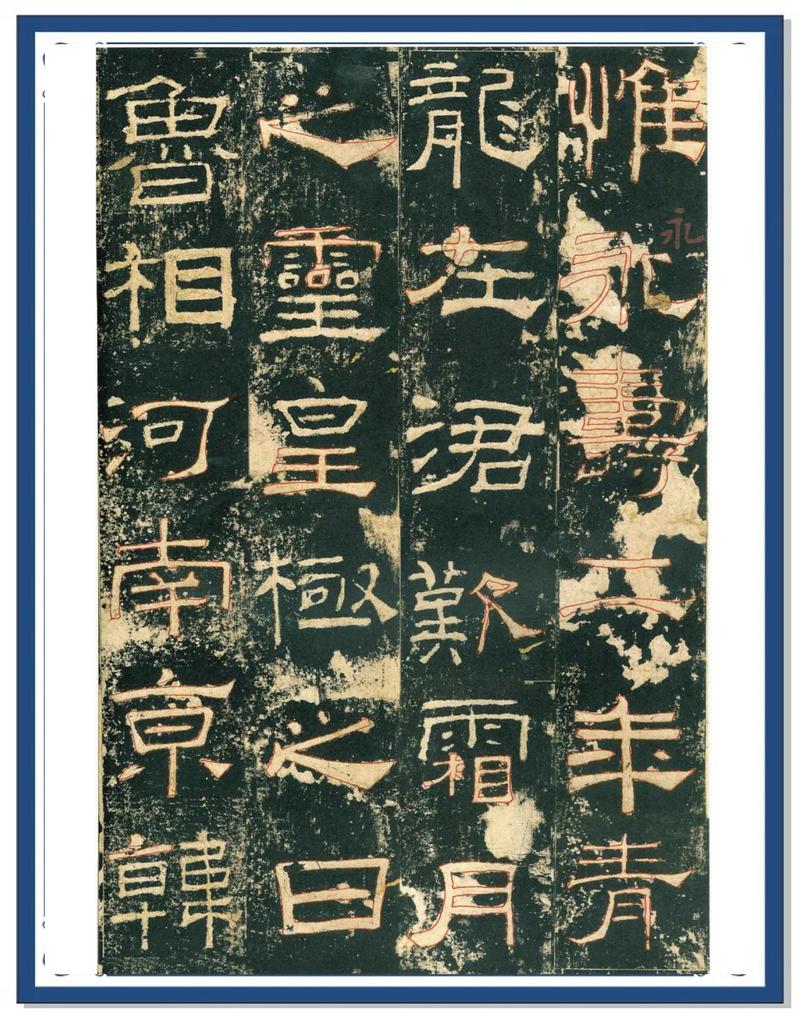 惟永壽二年青
龍在涒歎霜月
之靈皇極之日
魯相河南京韓
永